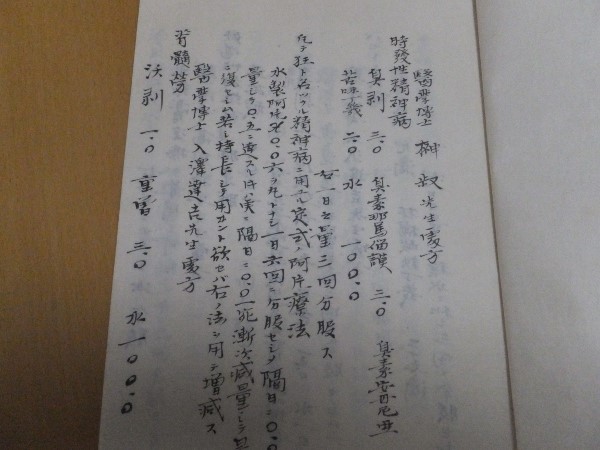 醫學博士 榊 俶先生處方
時發性精神病
臭剥 三.0 臭素那篤倫謨 三.0 臭素安尼亜
苦味丁幾 二.0 水 一00.0
右一日量三回分服ス
凡テ狂ト名ツクル精神病ニ用ユル定式ノ阿片療法
水製阿片 0.0六ヲ丸トナシ一日六回ニ分服セシメ隔日ニ0.0
量シ0.五ニ達スル片ハ実ニ隔日ニ0.0一宛漸次減量シテ
ニ復セシム若シ持長シテ用ヰント欲セバ右ノ法ヲ用テ増減ス
醫學博士 入澤達吉先生處方
脊髓勞
沃剥 一.0 重曹 三.0 水一00.0